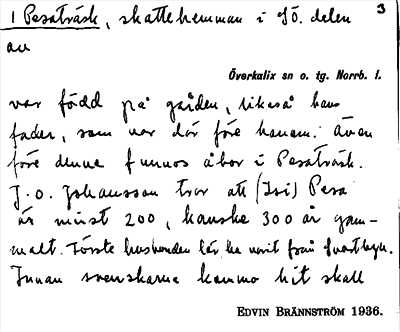 1 Pesaträsk, skattehemman i SÖ. delen 3
av
Överkalix sn o. tg. Norrb. l.
var född på gården, likaså hans
fader, som var där före honom. Även
före denne funnos åbor i Pesaträsk.
J. O. Johansson tror att (Isi) Pesa
är minst 200, kanske 300 år gam-
malt. Förste husbonden lär ha varit från
Innan svenskarna kommo hit skall
EDVIN BRÄNNSTRÖM 1936.